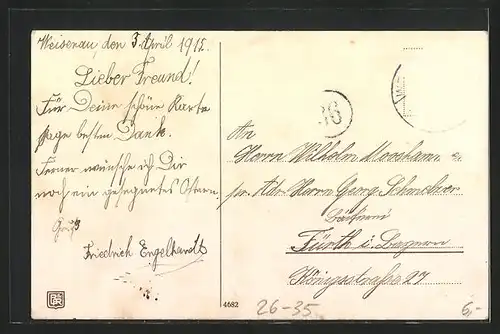 Weisenau, den 3 April 1915.
Lieber Freund!
Für Deine schöne Karte
sage besten Dank.
Ferner wünsche ich Dir
noch ein gesegnetes Ostern.
Gruß
Friedrich Engelhardt
36
An
Herrn Wilhelm
pr. Adr. Herrn Georg
Fürth i. Bayern
Königsstraße 27
4682
26-35
6,-